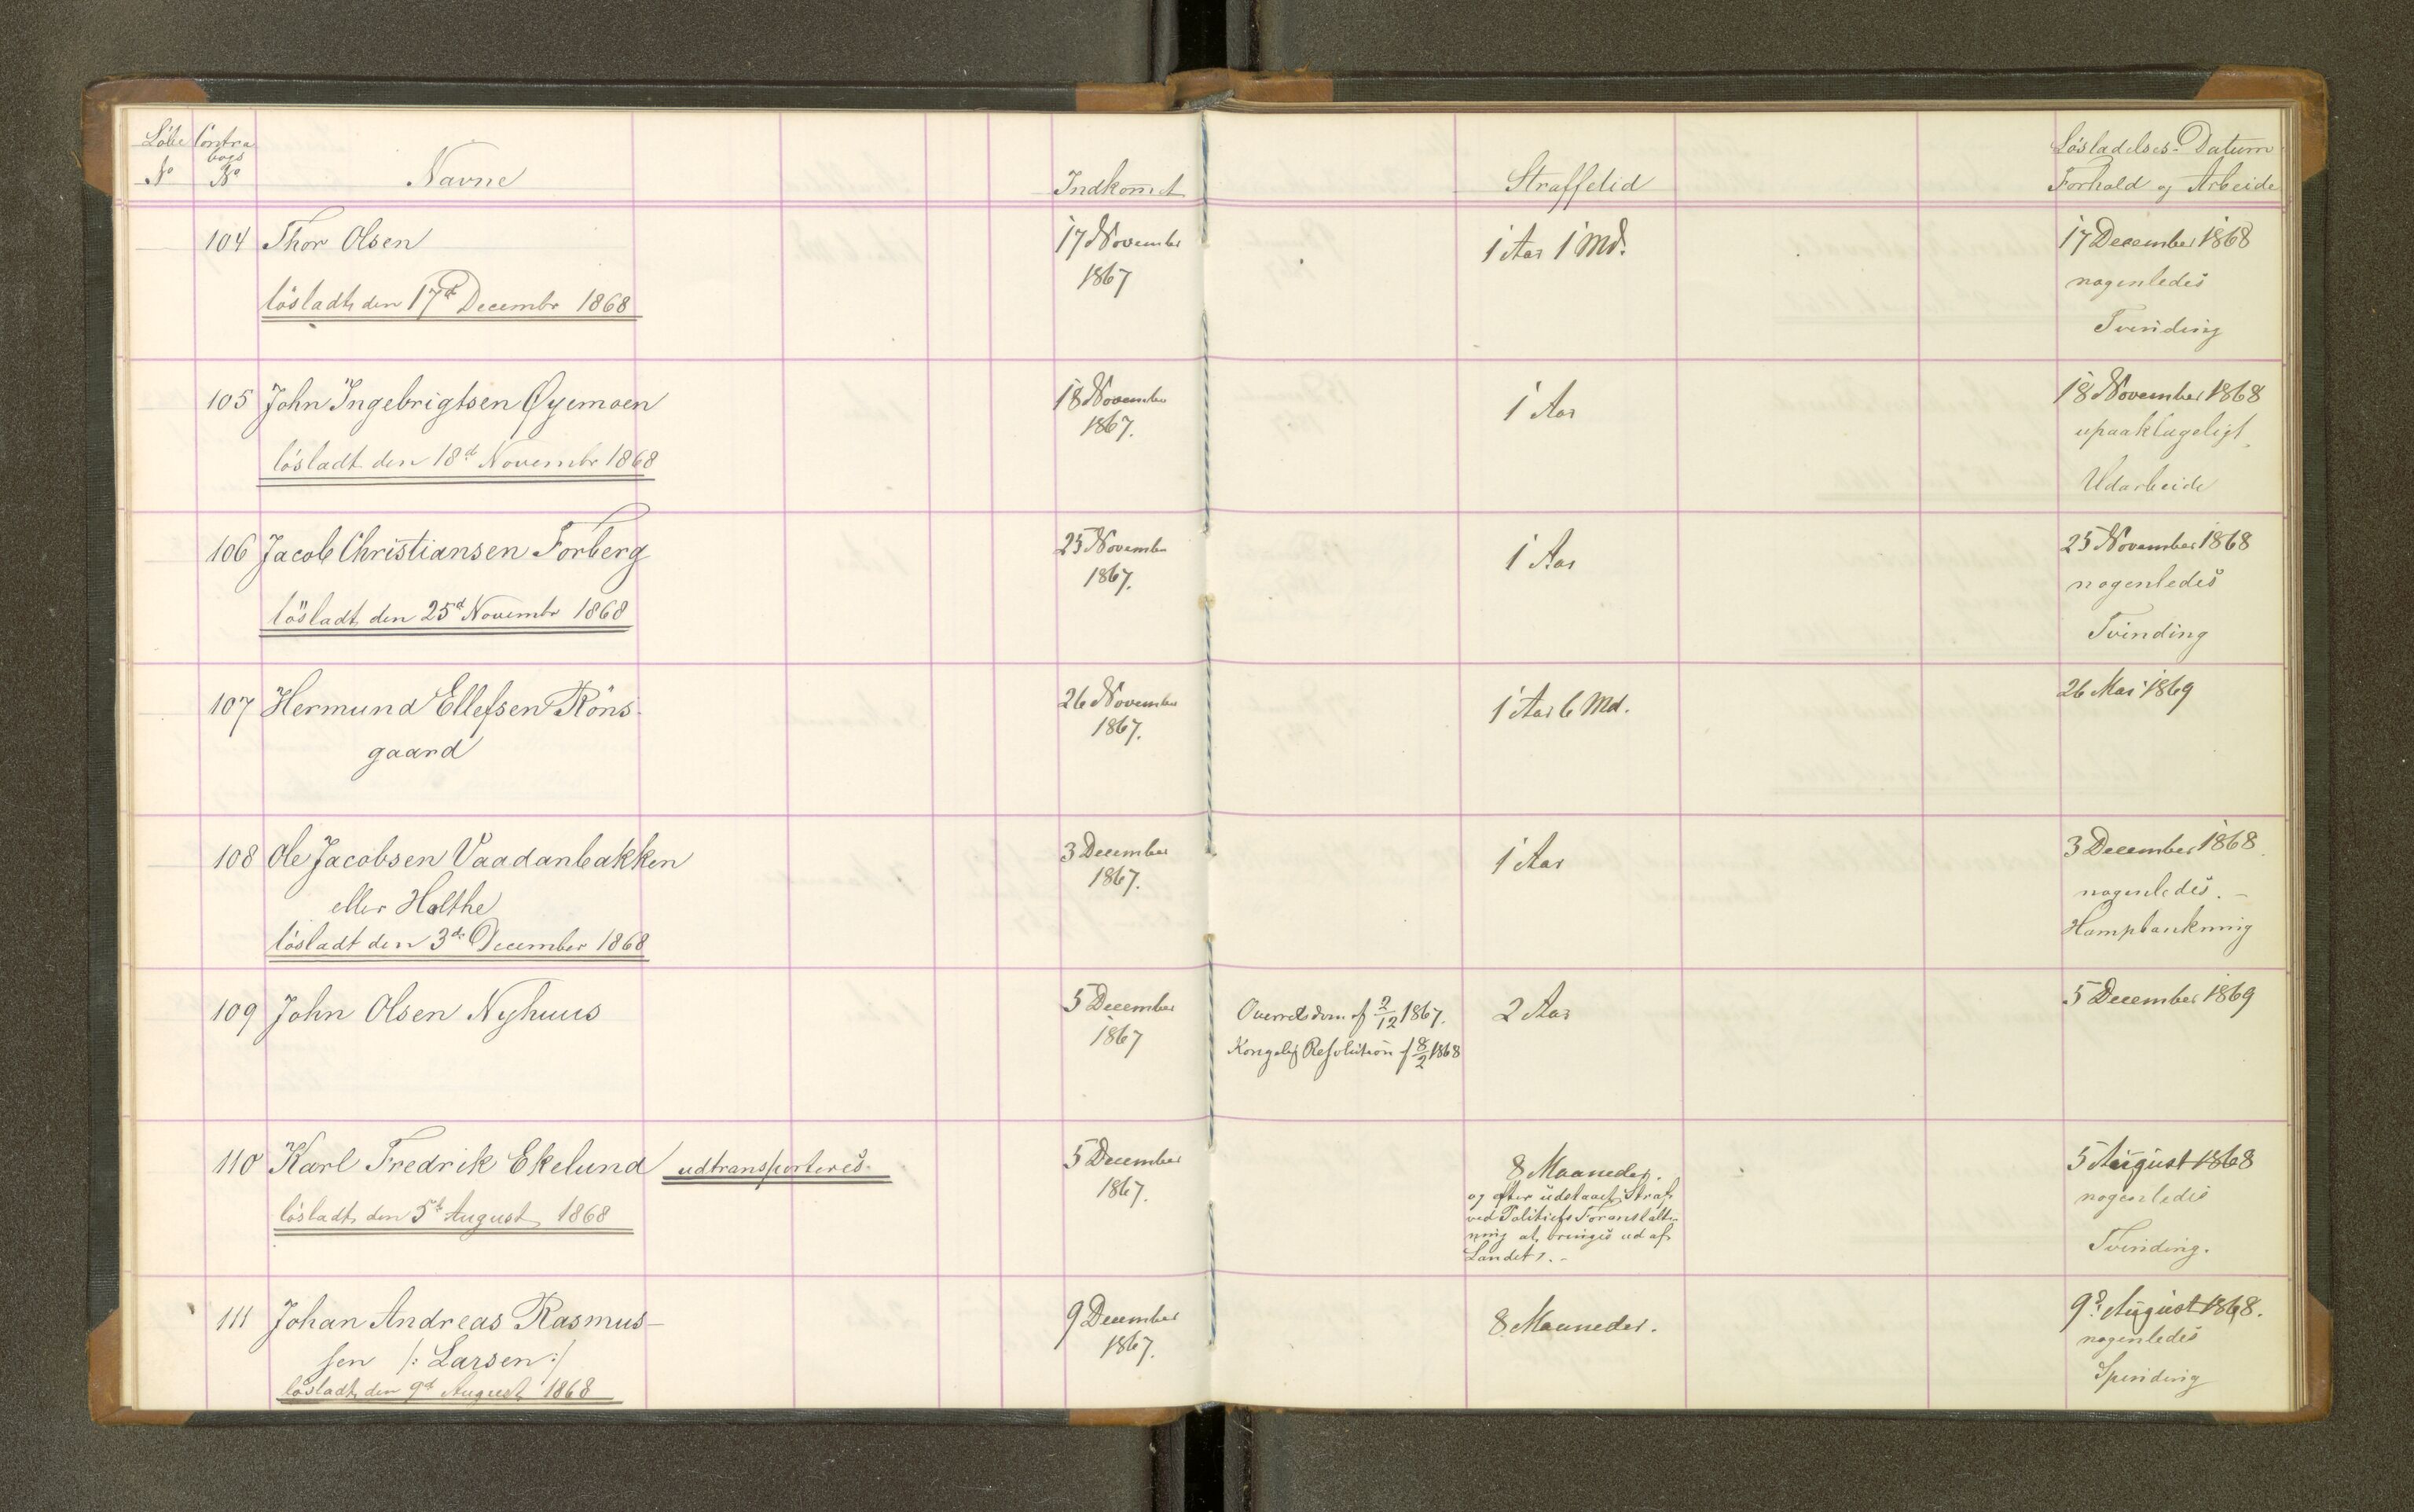 Löbe Contra
bogs
No No Navne Indkomst Straffetid Lösladelses-Datum
Forhold og Arbeide
104 Thor Olsen 17 November 1 Aar 1 Md. 17 December 1868
1867 nogenledes
lösladt den 17de Decembr 1868 Tvinding
105 John Ingebrigtsen Öyemoen 18 November 1 Aar 18 November 1868
1867. upaaklageligt
lösladt den 18d Novembr 1868 Udarbeide
106 Jacob Christiansen Forberg 25 November 1 Aar 25 November 1868
1867. nogenledes
lösladt den 25d Novembr 1868 Tvinding
107 Hermund Ellefsen Röns- 26 November 1 Aar 6 Md. 26 Mai 1869
gaard 1867.
108 Ole Jacobsen Vaadanbakken 3 December 1 Aar 3 December 1868.
eller Holthe 1867. nogenledes. -
lösladt den 3de December 1868 Hampbankning
109 John Olsen Nyhuus 5 December Overretsdom af 2/12 1867. 2 Aar 5 December 1869
1867 Kongelig Resolution af 8/2 1868
110 Karl Fredrik Ekelund udtransporteres. 5 December 8 Maaneder. 5 August 1868
1867. og efter udstaaet Straf nogenledes
lösladt den 5te August 1868 ved Politiets Foranstalt- Tvinding.
ning at bringes ud af
Landet. -
111 Johan Andreas Rasmus- 9 December 8 Maaneder. 9d August 1868.
sen /: Larsen :/ 1867. nogenledes
lösladt den 9d August 1868 Spinding